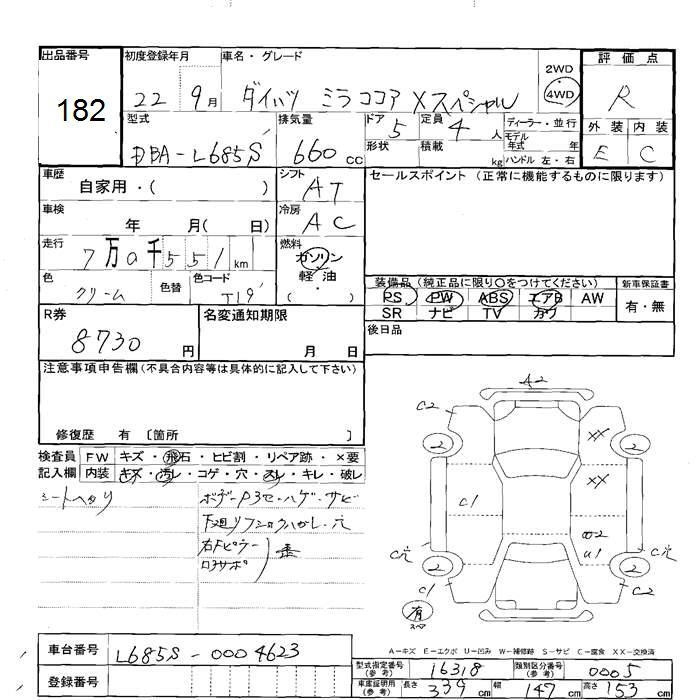 出品番号 182
初度登録年月 22 9月
車名・グレード ダイハツ ミラココア Xスペシャル
2WD
4WD
評価点 R
外装 内装
E C
型式 DBA-L685S
排気量 660 cc
ドア 5
定員 4 人
形状
積載 kg
ディーラー・並行
モデル年式 年
ハンドル 左・右
車歴 自家用・( )
シフト AT
セールスポイント (正常に機能するものに限ります)
車検 年 月( 日)
冷房 AC
走行 7万0千551 km
燃料 ガソリン
軽油
( ・ )
色 クリーム
色替
色コード T19
装備品 (純正品に限り○をつけてください)
PS PW ABS エアB AW
SR ナビ TV カワ
新車保証書
有・無
R券 8730 円
名変通知期限 月 日
後日品
注意事項申告欄 (不具合内容等は具体的に記入して下さい)
修復歴 有 〔箇所 〕
検査員 FW キズ・飛石・ヒビ割・リペア跡・×要
記入欄 内装 キズ・汚レ・コゲ・穴・スレ・キレ・破レ
シートヘタリ
ボデーP3セ・ハゲ・サビ
下廻リフショウハガレ・穴
右Fピラー
ロアサポ
歪
A2
C2
2
2
XX
XX
C1
@2
U1
C穴
C穴
2
2
C2
C2
有
スペア
A-キズ E-エクボ U-凹み W-補修跡 S-サビ C-腐食 XX-交換済
車台番号 L685S-0004623
登録番号
型式指定番号(参考) 16318
類別区分番号(参考) 0005
車庫証明用(参考) 長さ 339 cm 幅 147 cm 高さ 153 cm